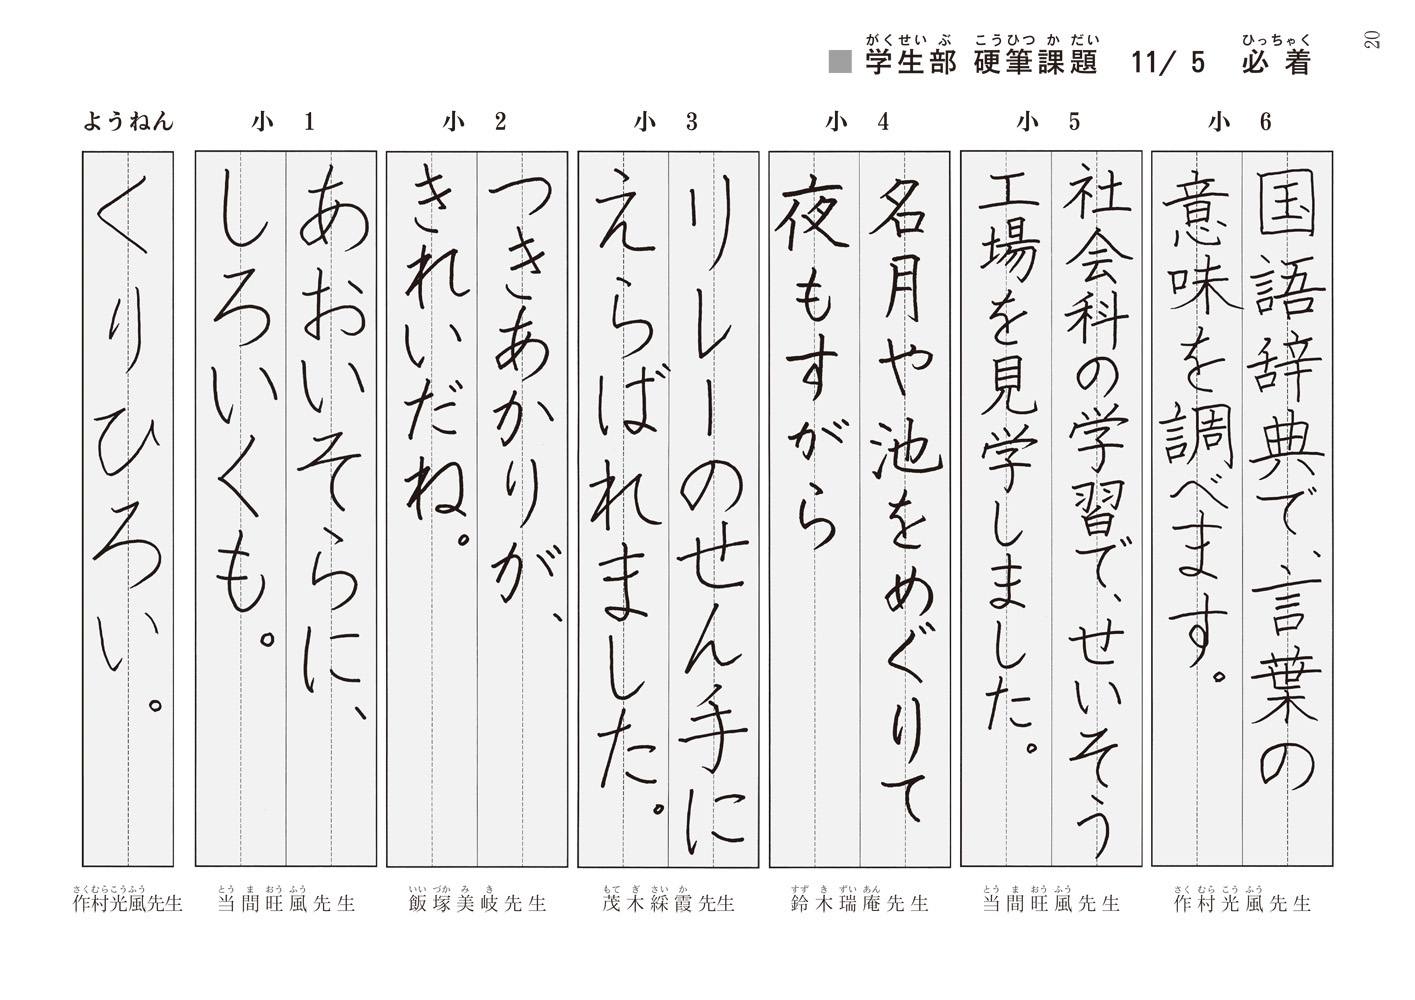 20
■ 学生部 硬筆課題 11/5 必着
がくせいぶ こうひつかだい ひっちゃく
小 6
国語辞典で、言葉の
意味を調べます。
さくむらこうふう
作村光風先生
小 5
社会科の学習で、せいそう
工場を見学しました。
とうまおうふう
当間旺風先生
小 4
名月や池をめぐりて
夜もすがら
すずきずいあん
鈴木瑞庵先生
小 3
リレーのせん手に
えらばれました。
もてぎさいか
茂木綵霞先生
小 2
つきあかりが、
きれいだね。
いいづかみき
飯塚美岐先生
小 1
あおいそらに、
しろいくも。
とうまおうふう
当間旺風先生
ようねん
くりひろい。
さくむらこうふう
作村光風先生